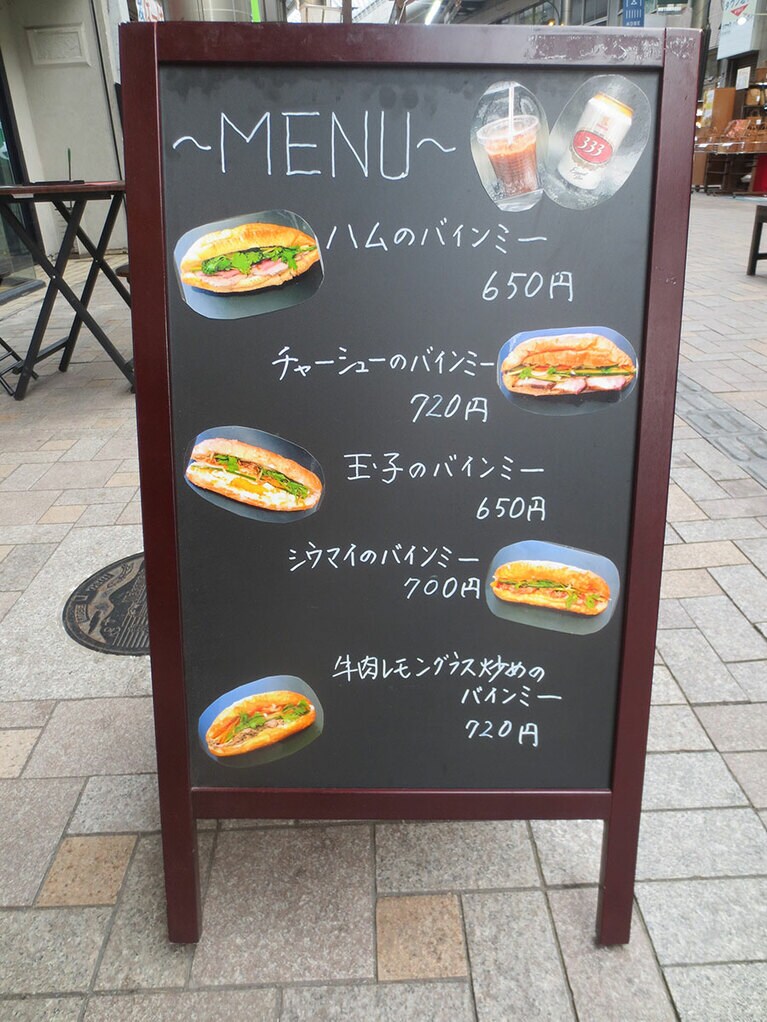 ~MENU~
333
ハムのバインミー
650円
チャーシューのバインミー
720円
玉子のバインミー
650円
シウマイのバインミー
700円
牛肉レモングラス炒めの
バインミー
720円